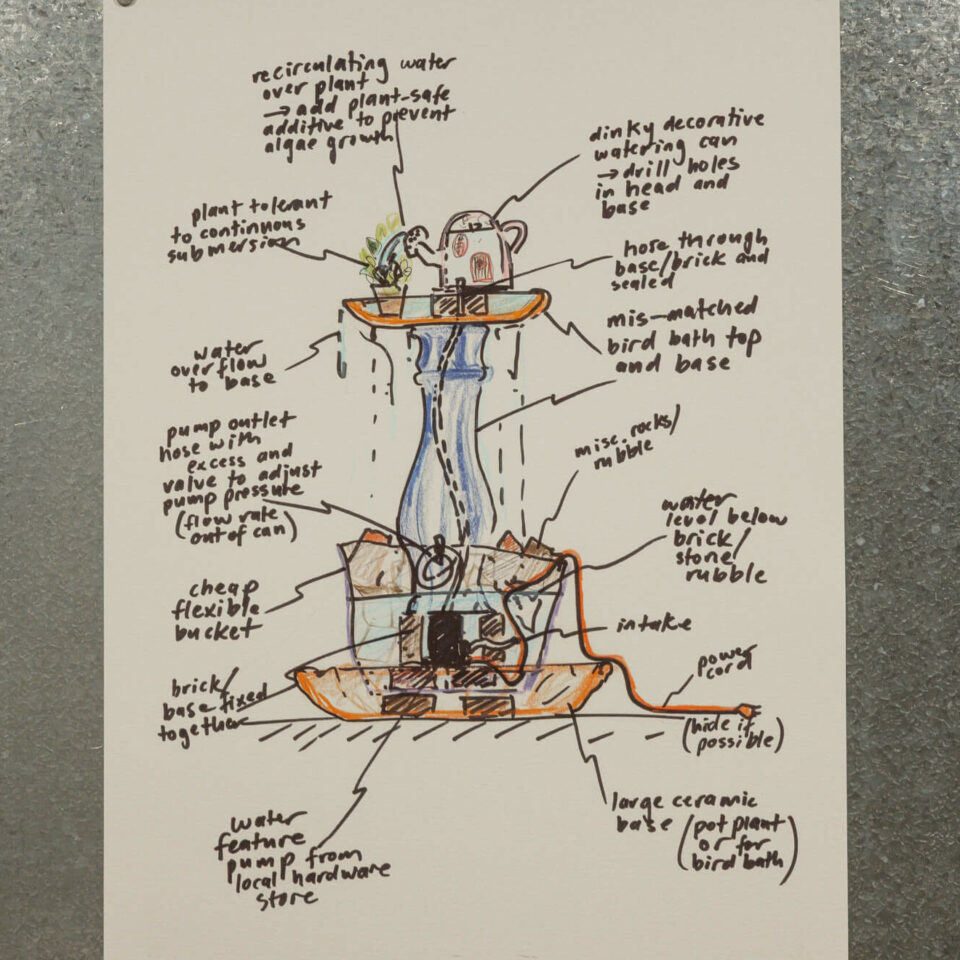 recirculating water
over plant
→ add plant-safe
additive to prevent
algae growth
dinky decorative
watering can
→ drill holes
in head and
base
plant tolerant
to continuous
submersion
hose through
base/brick and
sealed
mis-matched
bird bath top
and base
water
overflow
to base
misc. rocks/
rubble
pump outlet
hose with
excess and
valve to adjust
pump pressure
(flow rate
out of can)
water
level below
brick/
stone/
rubble
cheap
flexible
bucket
intake
power
cord
(hide if
possible)
brick/
base fixed
together
large ceramic
base (pot plant
or for
bird bath)
water
feature
pump from
local hardware
store